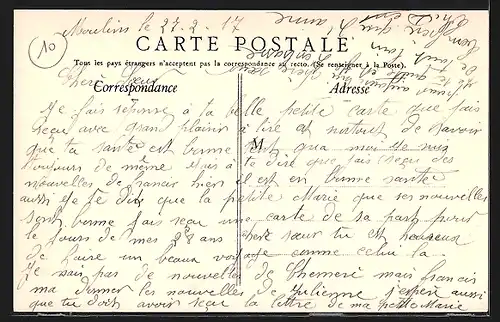 10
Moulins le 27-2-17
CARTE POSTALE
Tous les pays étrangers n'acceptent pas la correspondance au recto. (Se renseigner à la Poste).
Chère Sœur
Correspondance
Adresse
Je fais réponse à ta belle petite carte que j'ais
reçu avec grand plaisir à lire et surtout de savoir
que ta santé est bonne qua moi je suis
M
toujours de même Mais à te dire que j'ais reçu des
nouvelles de hier il est en bonne santé
aussi Je te dire que la petite Marie que ses nouvelles
sont bonne j'ais reçu une carte de sa part pour
le jours de mes 28 ans chère sœur tu est heureuse
de faire un beaux voyage comme celui la
Je sais pas de nouvelles de mais
ma donner les nouvelles de Julienne j'espère aussi
que tu dois avoir reçu la lettre de ma petite Marie